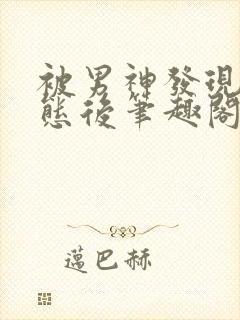 被男神發現
態後筆趣閣
邁巴赫